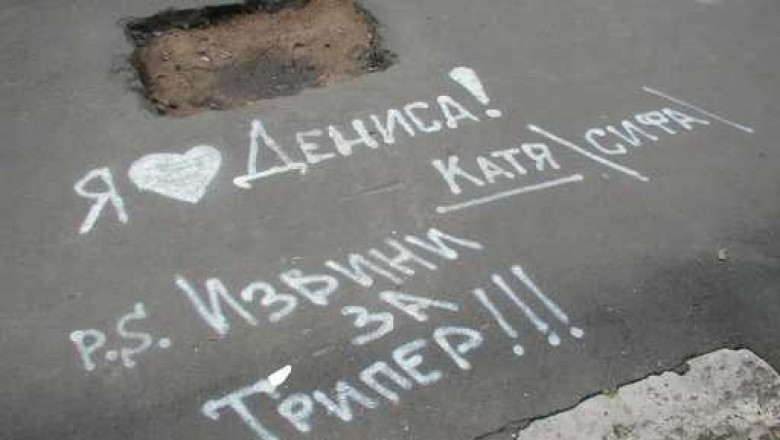 Я ♥ Дениса!
Катя\сифа\
P.S. Извини
за
Трипер!!!